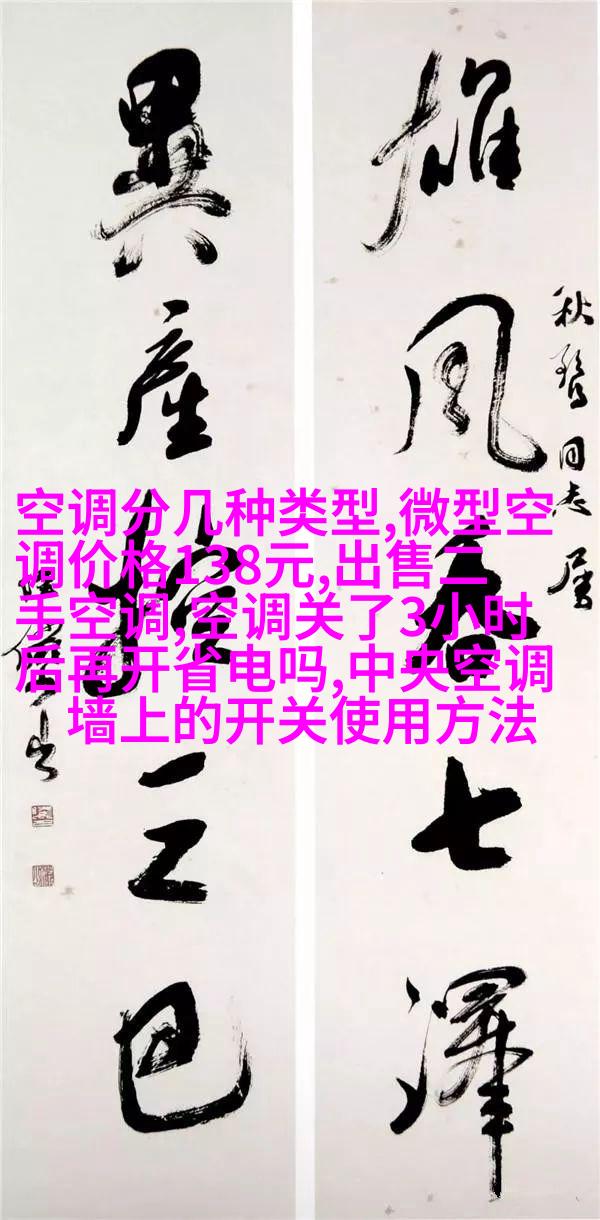 雄風吞七澤
同志属
異産控三巴
空调分几种类型,微型空
调价格138元,出售二
手空调,空调关了3小时
后再开省电吗,中央空调
墙上的开关使用方法